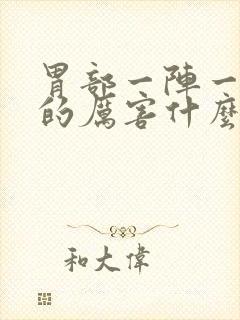 胃部一陣一
的厲害什麼
和大偉